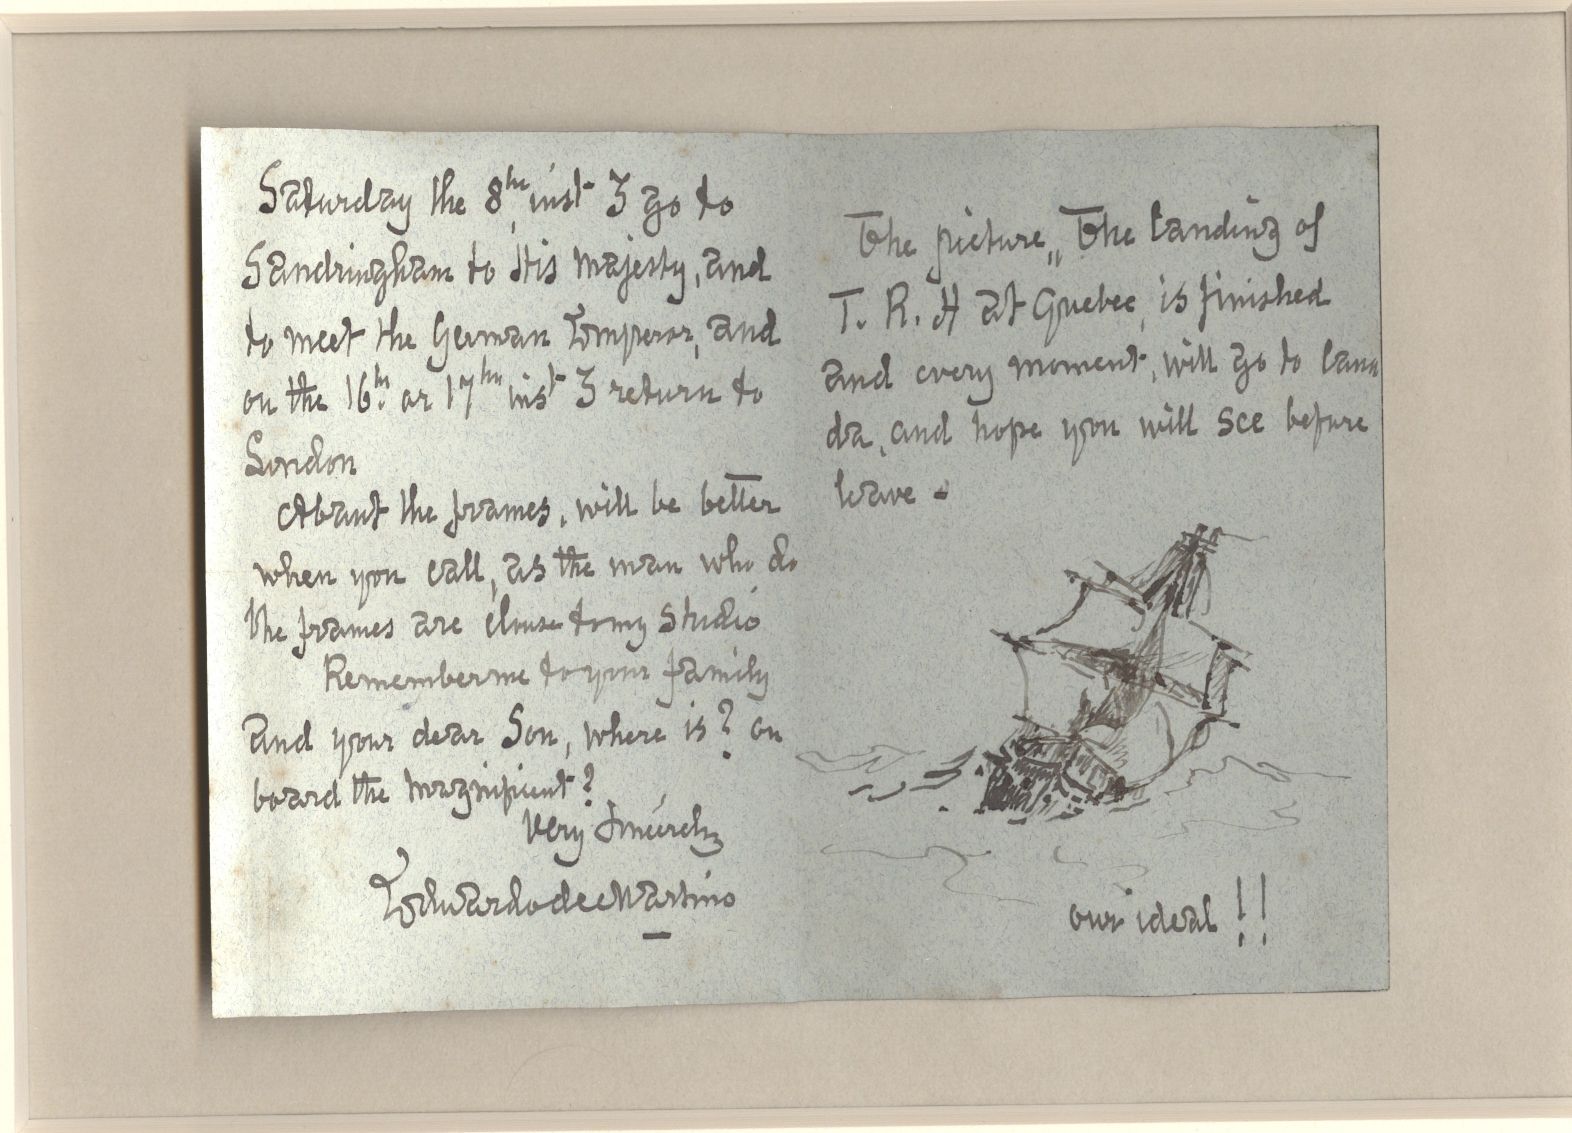 Saturday the 8th inst I go to
Sandringham to His Majesty, and
to meet the German Emperor, and
on the 16th or 17th inst I return to
London
About the frames, will be better
when you call, as the man who do
the frames are close to my studio
Remember me to your family
and your dear Son, where is? on
board the Magnificent?
Very Sincerely
Edwardo de Martino
The picture „ The Landing of
T. R. H at Quebec, is finished
and every moment, will go to Cana
da, and hope you will see before
leave -
our ideal !!